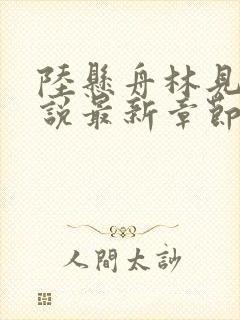 陸懸舟林見
說最新章節
人間太訬